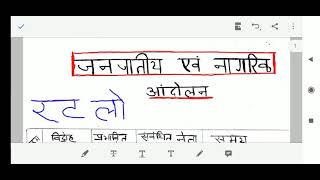 जनजातीय एवं नागरिक
आंदोलन
रट लो
विद्रोह प्रभावित संबंधित नेता समय